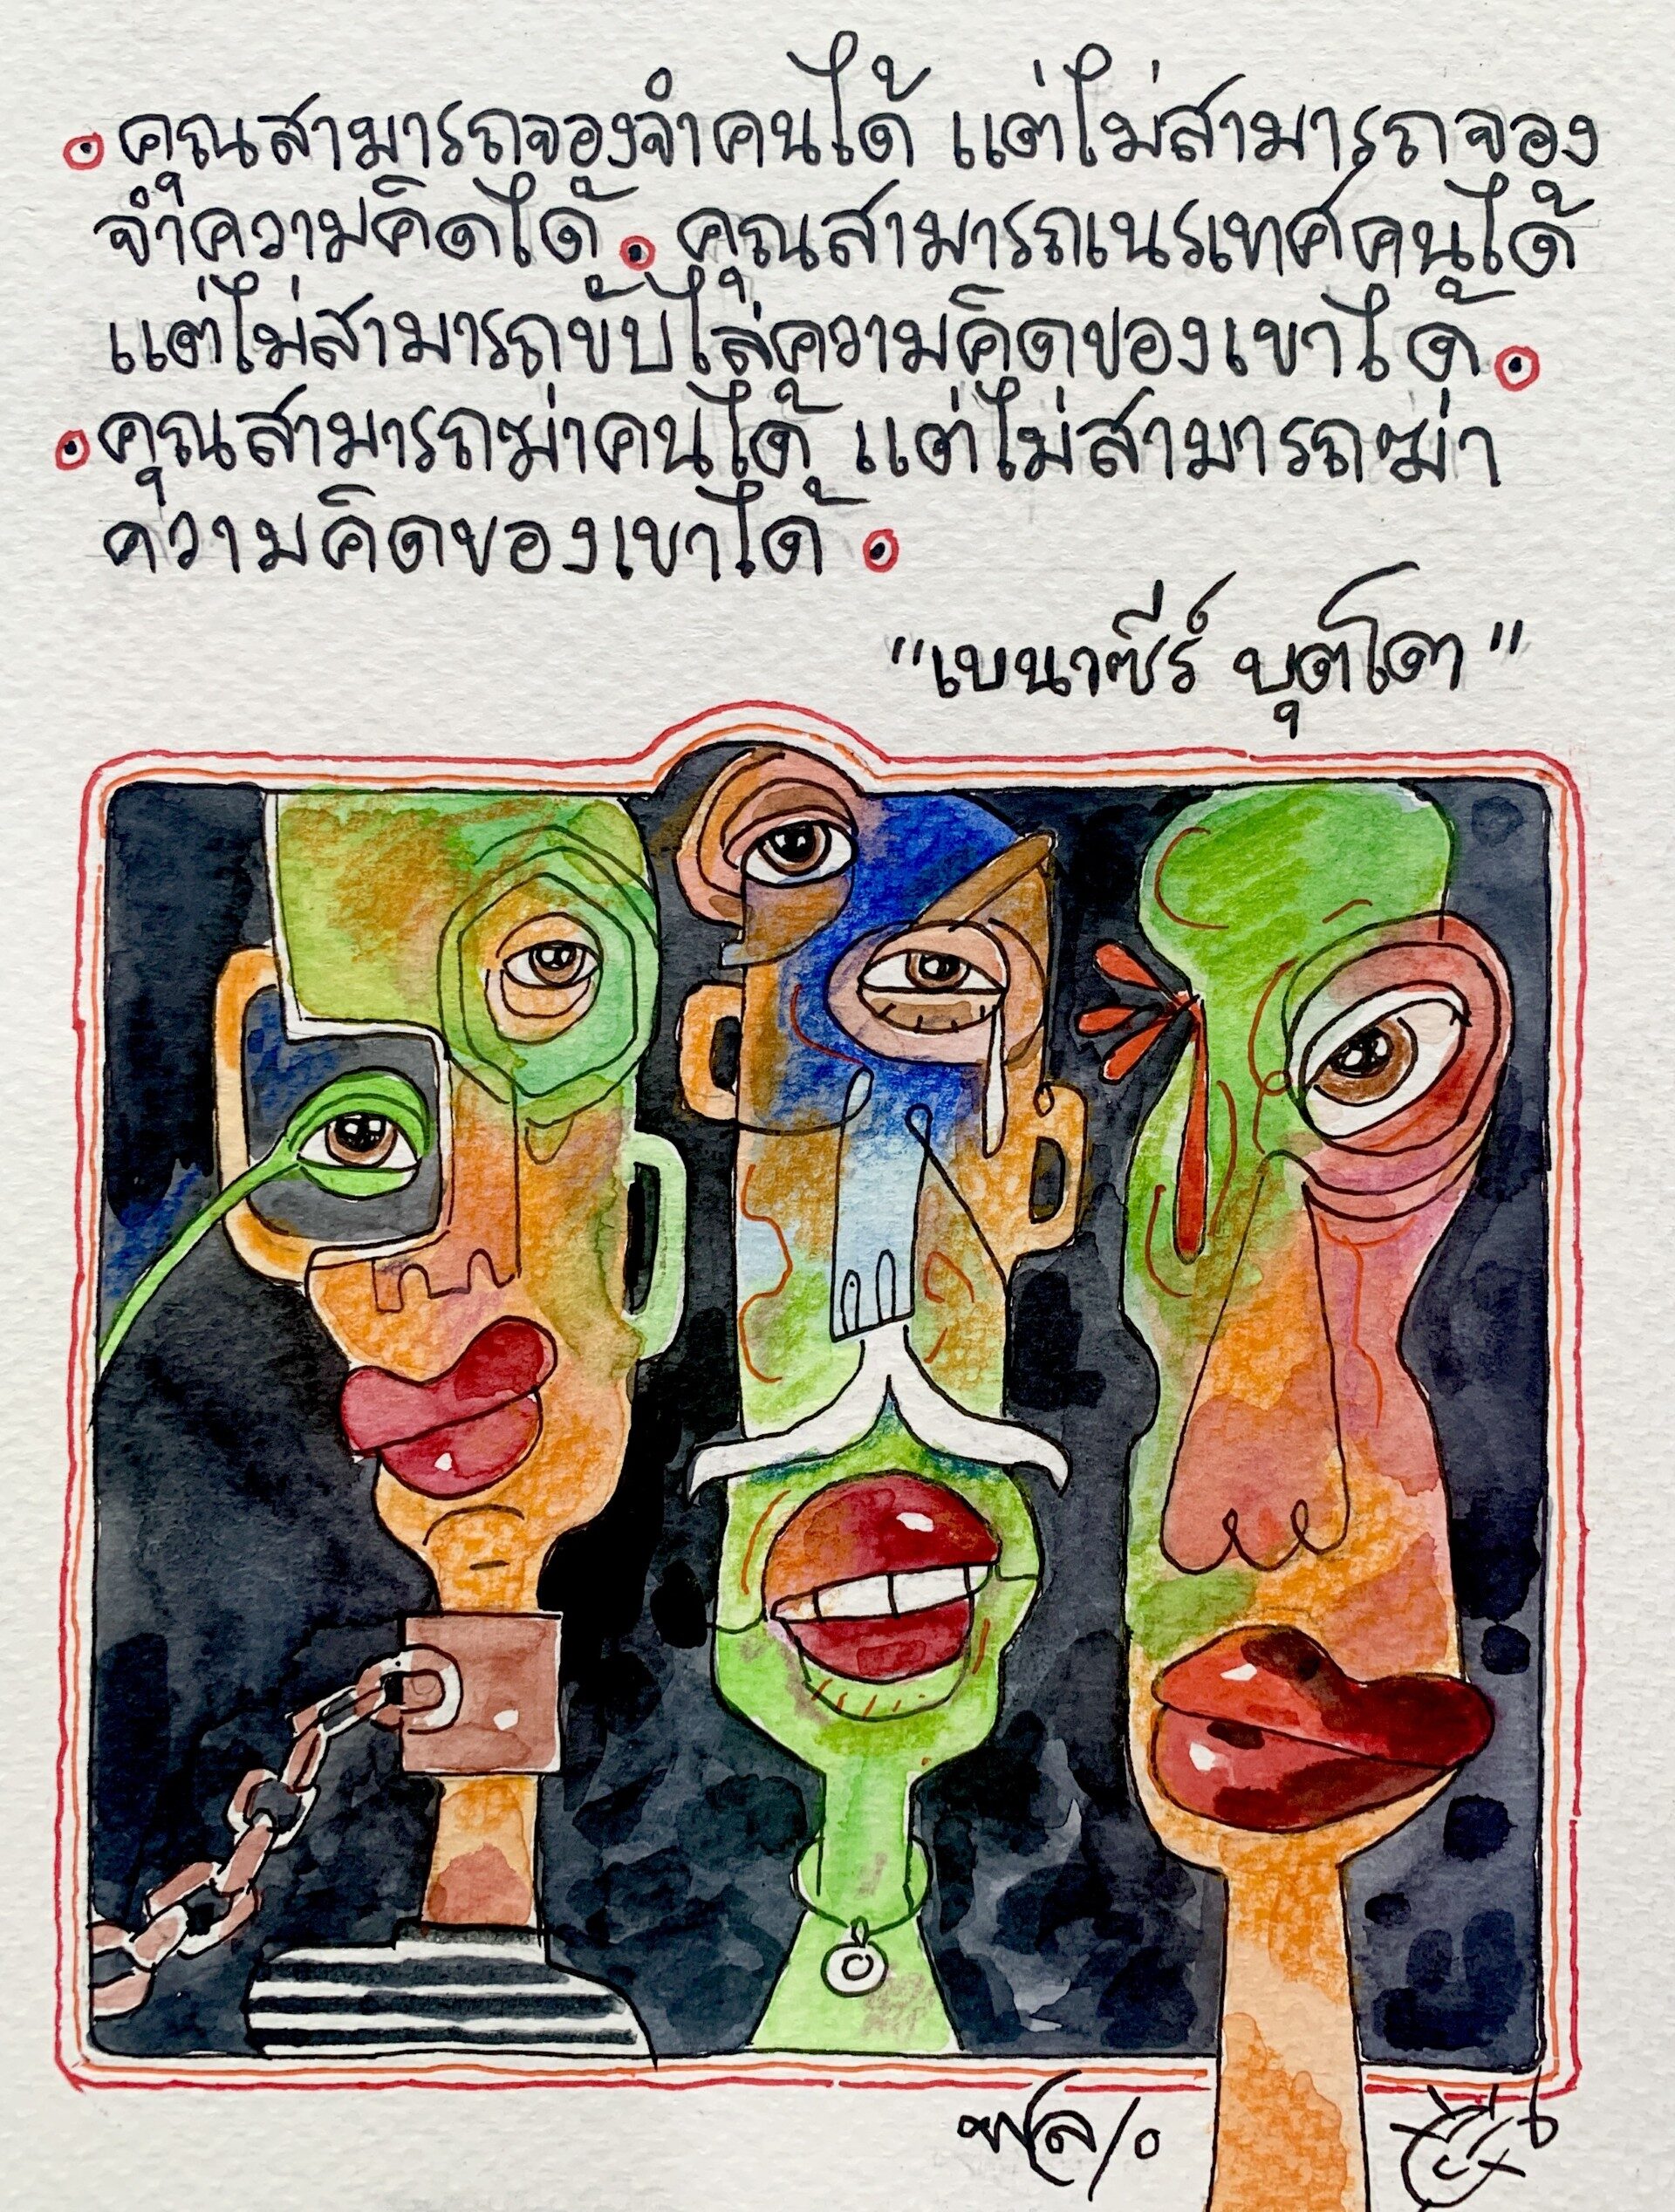 คุณสามารถจองจำคนได้ แต่ไม่สามารถจอง
จำความคิดได้. คุณสามารถเนรเทศคนได้
แต่ไม่สามารถขับไล่ความคิดของเขาได้.
คุณสามารถฆ่าคนได้ แต่ไม่สามารถฆ่า
ความคิดของเขาได้.
"เบนาซีร์ บุตโต"